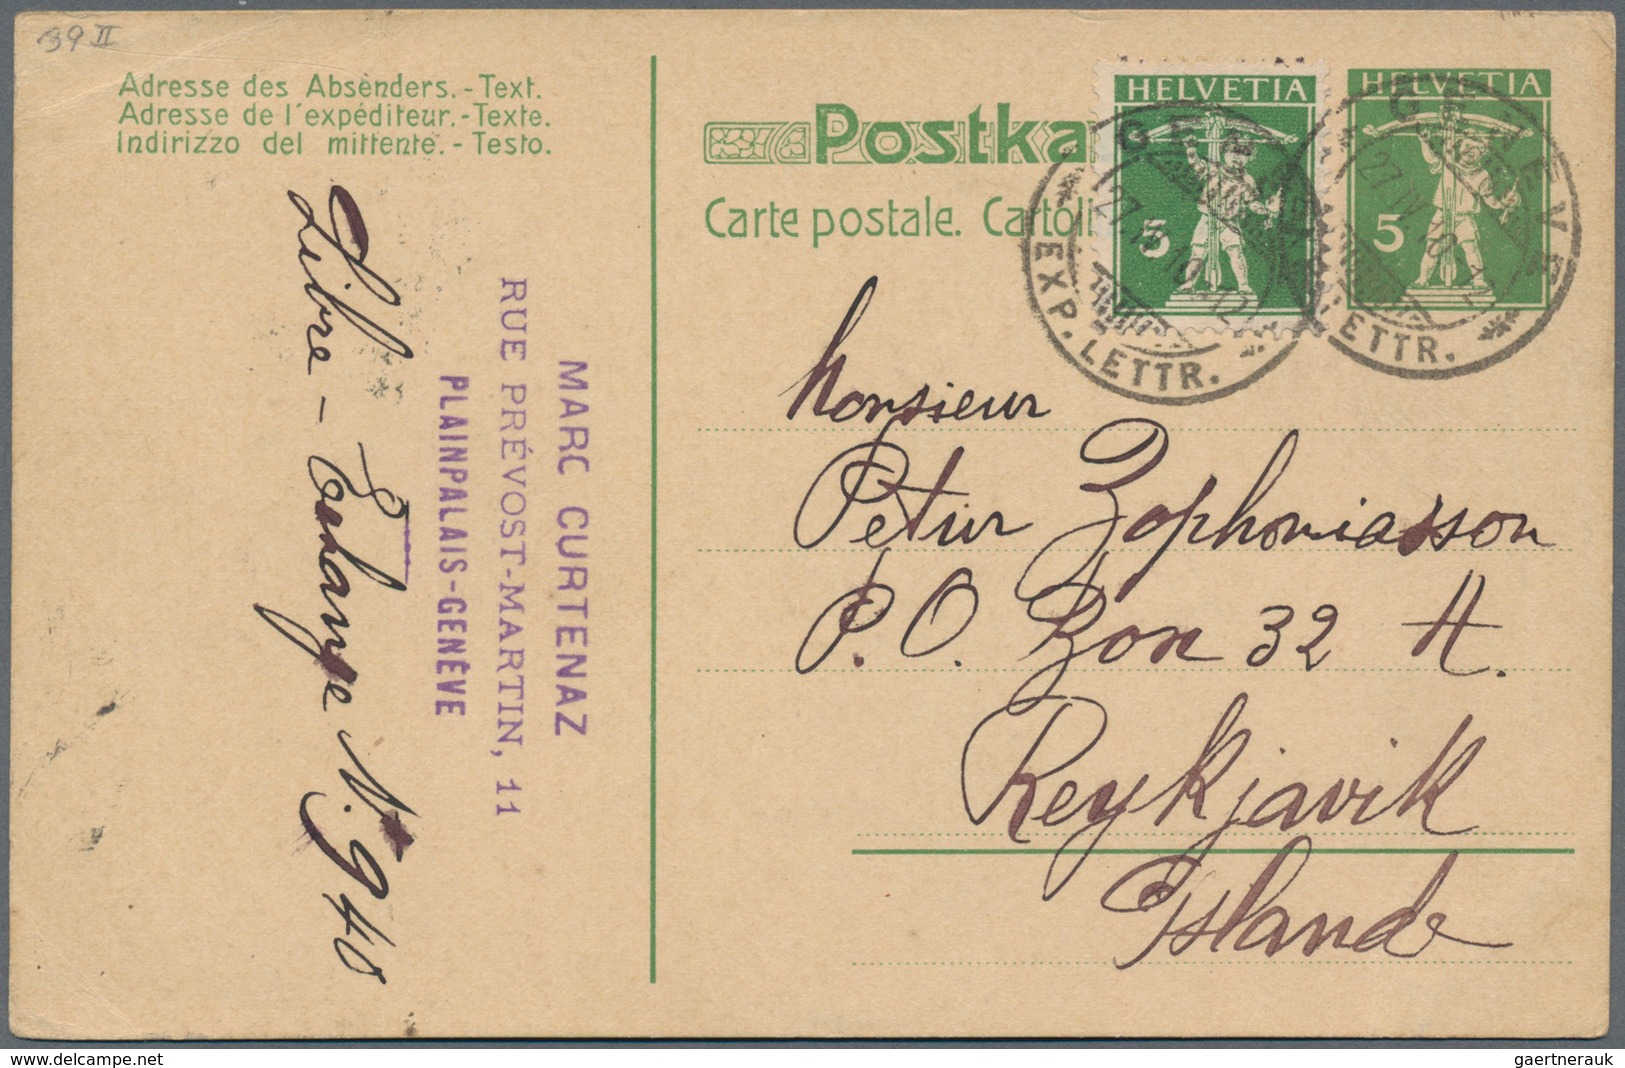 39 II
Adresse des Absenders.-Text.
Adresse de l'expéditeur.-Texte.
Indirizzo del mittente.-Testo.
Postka
Carte postale. Cartoli
HELVETIA
5
HELVETIA
5
GENÈVE
27.IV.10
EXP. LETTR.
GENÈVE
27.IV.10
LETTR.
MARC CURTENAZ
RUE PRÉVOST-MARTIN, 11
PLAINPALAIS-GENÈVE
Libre - Echange N. 940
Monsieur
Petur Zophoniasson
P.O. Box 32 A.
Reykjavik
Islande
delcampe.net
gaertnerauk